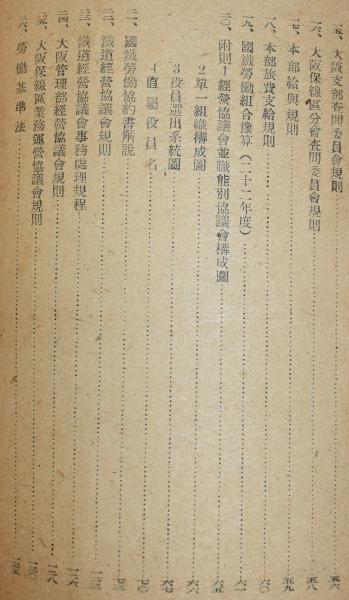 一五、大阪支部査問委員會規則……五六
一六、大阪保線區分會査問委員會規則……五八
一七、本部給與規則……五九
一八、本部旅費支給規則……六〇
一九、國鐵勞働組合豫算(二十二年度)……六一
二〇、附則1 經營協議會並職能別協議會構成圖……六五
2 單一組織構成圖……六六
3 役員選出系統圖……六七
4 直屬役員名……七〇
二一、國鐵勞働協約書解説……七三
二二、鐵道經營協議會規則……
二三、鐵道經營協議會事務處理規程……一二六
二四、大阪管理部經營協議會規則……一二八
二五、大阪保線區業務運營協議會規則……一三〇
二六、勞働基準法……一三五